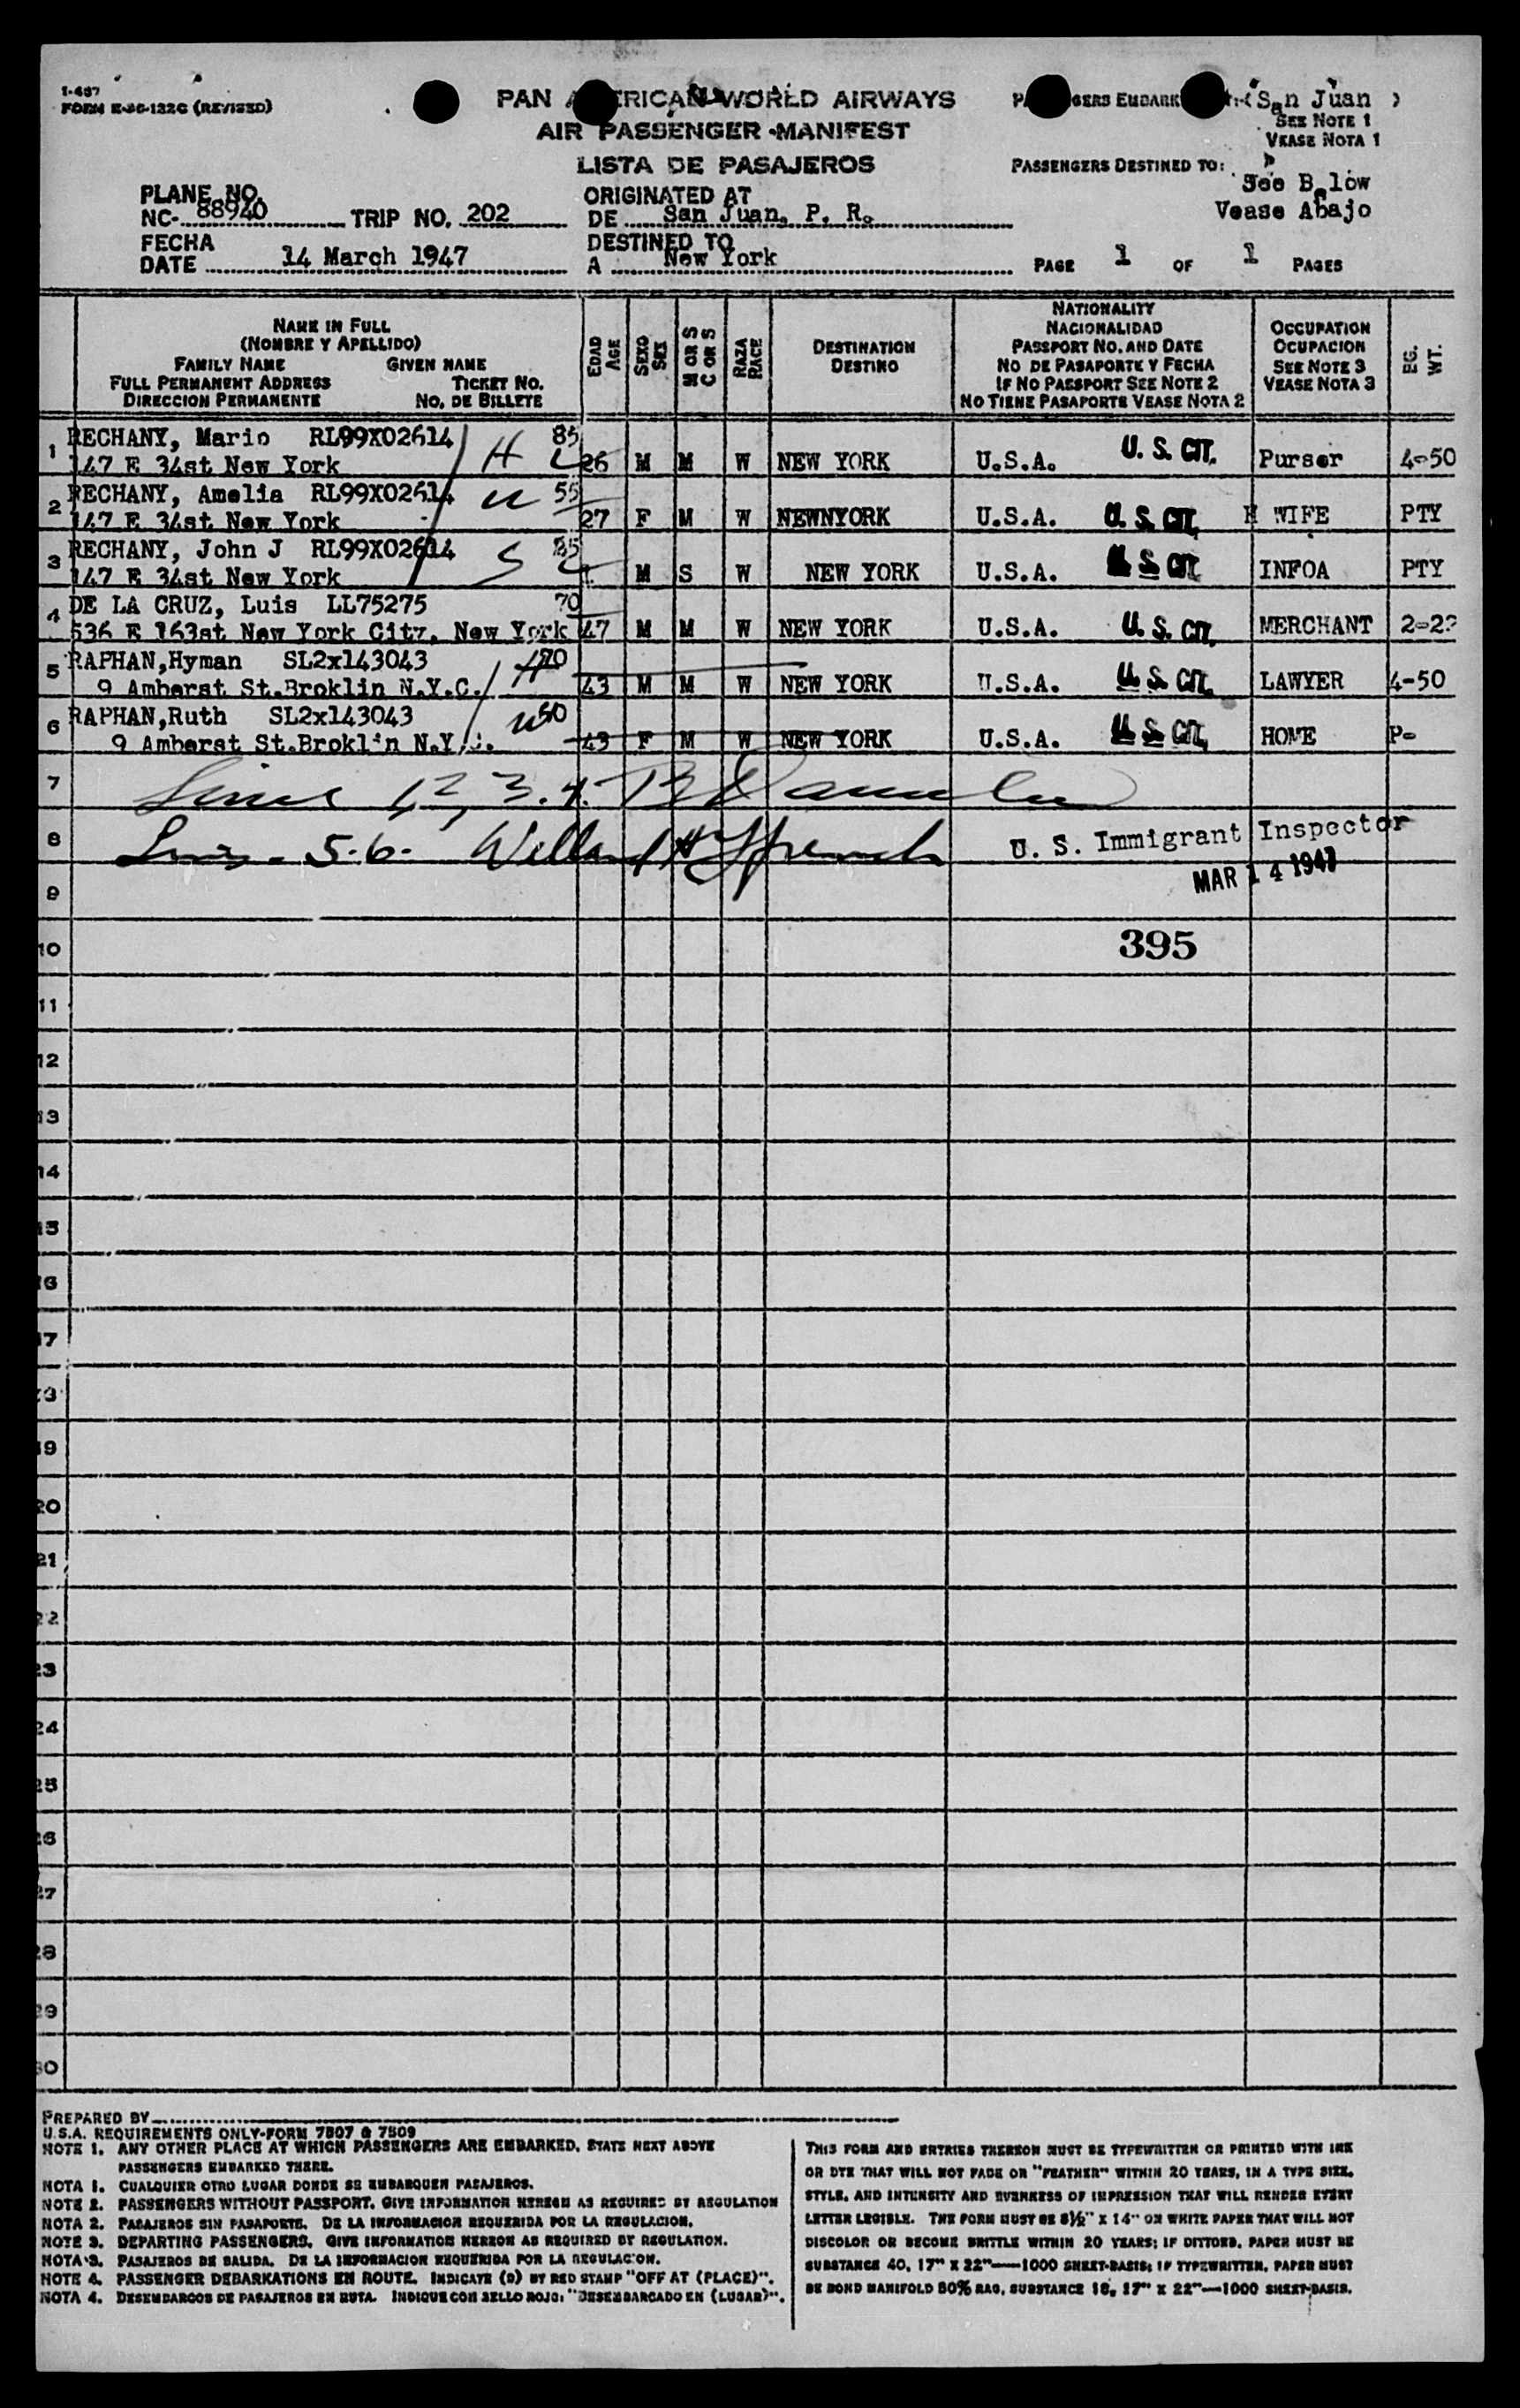 I-467
FORM E-86-122G (REVISED)
PAN AMERICAN WORLD AIRWAYS
AIR PASSENGER MANIFEST
LISTA DE PASAJEROS
PASSENGERS EMBARK San Juan )
SEE NOTE 1
VEASE NOTA 1
PASSENGERS DESTINED TO:
See Below
Vease Abajo
PLANE NO.
NC- 88940 TRIP NO. 202
ORIGINATED AT
DE San Juan, P. R.
FECHA
DATE 14 March 1947
DESTINED TO
A New York
PAGE 1 OF 1 PAGES
NAME IN FULL
(NOMBRE Y APELLIDO)
FAMILY NAME GIVEN NAME
FULL PERMANENT ADDRESS TICKET NO.
DIRECCION PERMANENTE NO. DE BILLETE
EDAD
AGE
SEXO
SEX
M OR S
C OR S
RAZA
RACE
DESTINATION
DESTINO
NATIONALITY
NACIONALIDAD
PASSPORT NO. AND DATE
NO DE PASAPORTE Y FECHA
IF NO PASSPORT SEE NOTE 2
NO TIENE PASAPORTE VEASE NOTA 2
OCCUPATION
OCUPACION
SEE NOTE 3
VEASE NOTA 3
EG.
WT.
1 RECHANY, Mario RL99X02614 H 85
147 E 34st New York 26 M M W NEW YORK U.S.A. U. S. CIT. Purser 4-50
2 RECHANY, Amelia RL99X02614 55
147 E 34st New York 27 F M W NEWNYORK U.S.A. U. S. CIT. H WIFE PTY
3 RECHANY, John J RL99X02614 S
147 E 34st New York M S W NEW YORK U.S.A. U S CIT INFOA PTY
4 DE LA CRUZ, Luis LL75275 70
536 E 163st New York City, New York 47 M M W NEW YORK U.S.A. U. S. CIT. MERCHANT 2-22
5 RAPHAN,Hyman SL2x143043 H
9 Amherst St.Broklin N.Y.C. 43 M M W NEW YORK U.S.A. U. S. CIT. LAWYER 4-50
6 RAPHAN,Ruth SL2x143043 50
9 Amherst St.Broklin N.Y.C. 43 F M W NEW YORK U.S.A. U S CIT. HOME P-
7 Lines 1, 2, 3. 4.
8 Lines - 5-6- U. S. Immigrant Inspector
MAR 14 1947
9
10 395
11
12
13
14
15
16
17
18
19
20
21
22
23
24
25
26
27
28
29
30
PREPARED BY
U.S.A. REQUIREMENTS ONLY-FORM 7507 & 7509
NOTE 1. ANY OTHER PLACE AT WHICH PASSENGERS ARE EMBARKED, STATE NEXT ABOVE
PASSENGERS EMBARKED THERE.
NOTA 1. CUALQUIER OTRO LUGAR DONDE SE EMBARQUEN PASAJEROS.
NOTE 2. PASSENGERS WITHOUT PASSPORT. GIVE INFORMATION HEREON AS REQUIRED BY REGULATION
NOTA 2. PASAJEROS SIN PASAPORTE. DE LA INFORMACION REQUERIDA POR LA REGULACION.
NOTE 3. DEPARTING PASSENGERS. GIVE INFORMATION HEREON AS REQUIRED BY REGULATION.
NOTA 3. PASAJEROS DE SALIDA. DE LA INFORMACION REQUERIDA POR LA REGULACION.
NOTE 4. PASSENGER DEBARKATIONS EN ROUTE. INDICATE (D) BY RED STAMP "OFF AT (PLACE)".
NOTA 4. DESEMBARCOS DE PASAJEROS EN RUTA. INDIQUE CON SELLO ROJO: "DESEMBARCADO EN (LUGAR)".
THIS FORM AND ENTRIES THEREON MUST BE TYPEWRITTEN OR PRINTED WITH INK
OR DYE THAT WILL NOT FADE OR "FEATHER" WITHIN 20 YEARS, IN A TYPE SIZE,
STYLE, AND INTENSITY AND EVENNESS OF IMPRESSION THAT WILL RENDER EVERY
LETTER LEGIBLE. THE FORM MUST BE 8½" X 14" ON WHITE PAPER THAT WILL NOT
DISCOLOR OR BECOME BRITTLE WITHIN 20 YEARS; IF DITTOED, PAPER MUST BE
SUBSTANCE 40, 17" X 22"—1000 SHEET-BASIS; IF TYPEWRITTEN, PAPER MUST
BE BOND MANIFOLD 50% RAG, SUBSTANCE 18, 17" X 22"—1000 SHEET-BASIS.